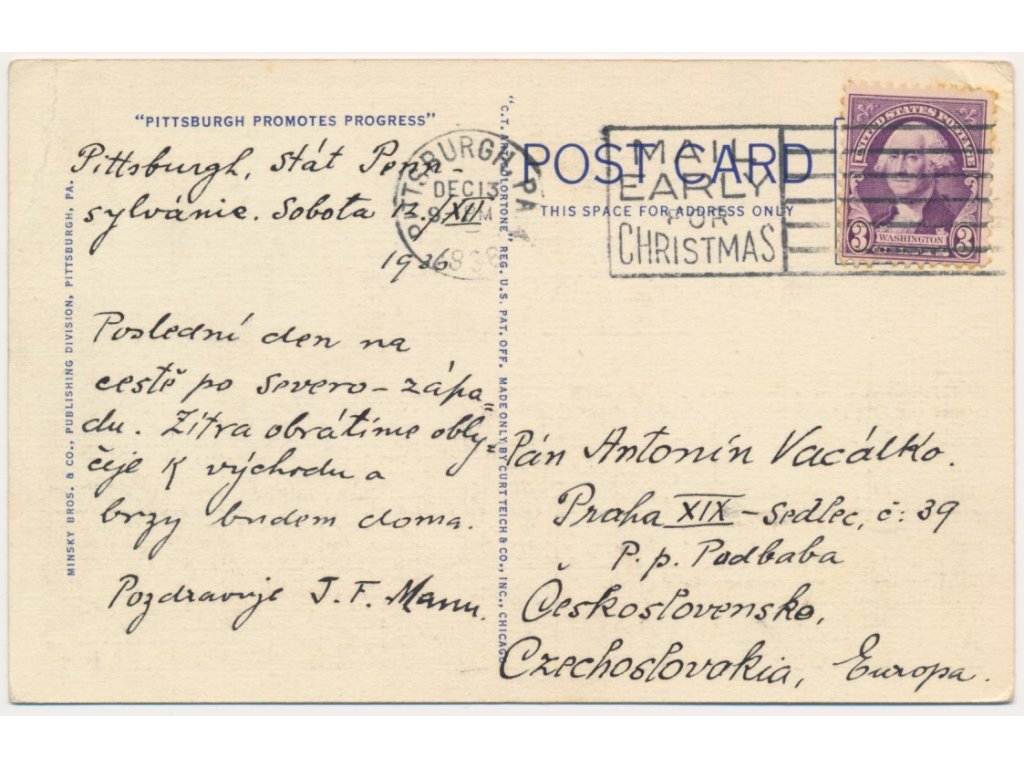 "PITTSBURGH PROMOTES PROGRESS"
Pittsburgh, Stát Penn
sylvánie. Sobota 12./XII.
1936
Poslední den na
cestě po severo-zápa„
du. Zítra obrátíme obly„
čeje k východu a
brzy budem doma.
Pozdravuje J. F. Mann.
MINSKY BROS. & CO., PUBLISHING DIVISION, PITTSBURGH, PA.
"C.T. ART-COLORTONE" REG. U.S. PAT. OFF. MADE ONLY BY CURT TEICH & CO., INC., CHICAGO
PITTSBURGH PA
DEC 13
1936
MAIL
EARLY
FOR
CHRISTMAS
POST CARD
THIS SPACE FOR ADDRESS ONLY
UNITED STATES POSTAGE
WASHINGTON
3 3
Pán Antonín Vacátko.
Praha XIX - Sedlec, č: 39
P. p. Podbaba
Československo,
Czechoslovakia, Europa.